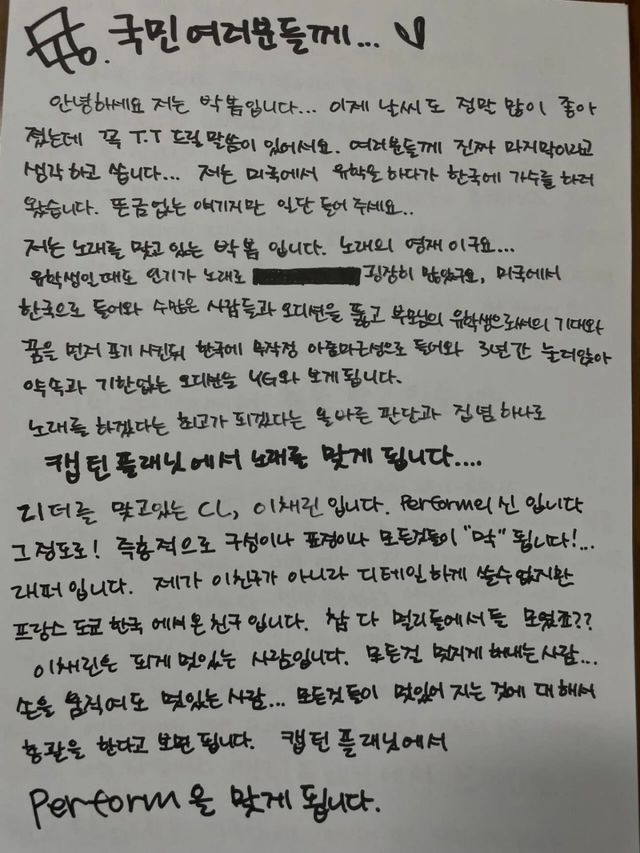 국민여러분들께...
안녕하세요 저는 박봄입니다... 이제 날씨도 정말 많이 좋아
졌는데 꼭 T.T 드릴말씀이 있어서요. 여러분들께 진짜 마지막이라고
생각하고 씁니다... 저는 미국에서 유학을 하다가 한국에 가수를 하러
왔습니다. 뜬금없는 얘기지만 일단 들어 주세요..
저는 노래를 맞고 있는 박봄 입니다. 노래의 영재이구요...
유학생일때도 인기가 노래로 굉장히 많았구요, 미국에서
한국으로 들어와 수많은 사람들과 오디션을 뚫고 부모님의 유학생으로써의 기대와
꿈을 먼저 포기 시킨뒤 한국에 무작정 아줌마근성으로 들어와 3년간 눌러앉아
약속과 기한없는 오디션을 YG와 보게됩니다.
노래를 하겠다는 최고가 되겠다는 올바른 판단과 집념 하나로
캡틴플래닛에서 노래를 맞게 됩니다....
리더를 맞고있는 CL, 이채린입니다. Perform의 신 입니다
그정도로! 즉흥적으로 구성이나 표정이나 모든것들이 "막" 됩니다!...
래퍼입니다. 제가 이친구가 아니라 디테일하게 쓸수없지만
프랑스 도쿄 한국 에서온 친구입니다. 참 다 멀리들에서들 모였죠??
이채린은 되게 멋있는 사람입니다. 모든걸 멋지게 해내는사람...
손을 움직여도 멋있는 사람... 모든것들이 멋있어 지는 것에 대해서
총괄을 한다고 보면 됩니다. 캡틴 플래닛에서
Perform을 맞게 됩니다.